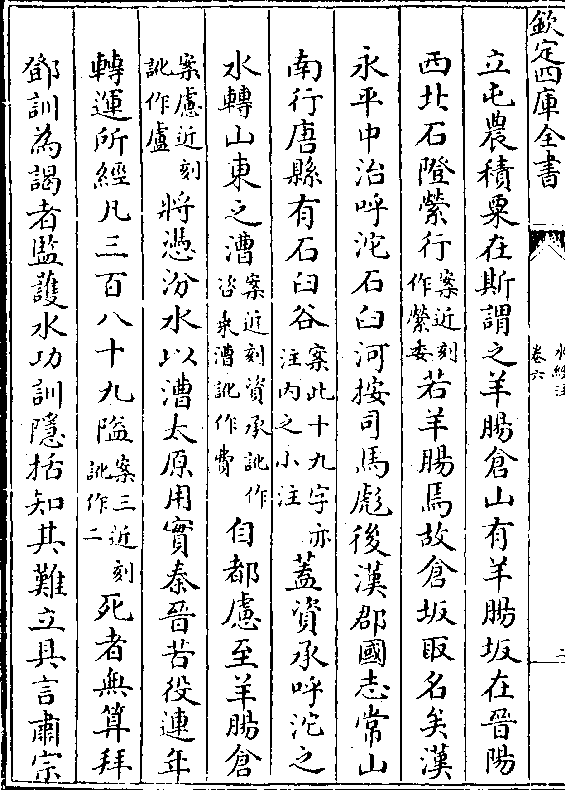 欽定四庫全書
水經注
卷六
立屯農積粟在斯謂之羊腸倉山有羊腸坂在晉陽
西北石隥縈行案近刻作縈委若羊腸焉故倉坂取名矣漢
永平中治呼沱石臼河按司馬彪後漢郡國志常山
南行唐縣有石臼谷案此十九字亦注内之小注蓋資承呼沱之
水轉山東之漕案近刻資承訛作咨乗漕訛作費自都慮至羊腸倉
案慮近刻訛作盧將憑汾水以漕太原用實秦晉苦役連年
轉運所經凡三百八十九隘案三近刻訛作二死者無算拜
鄧訓為謁者監護水功訓隱括知其難立具言肅宗